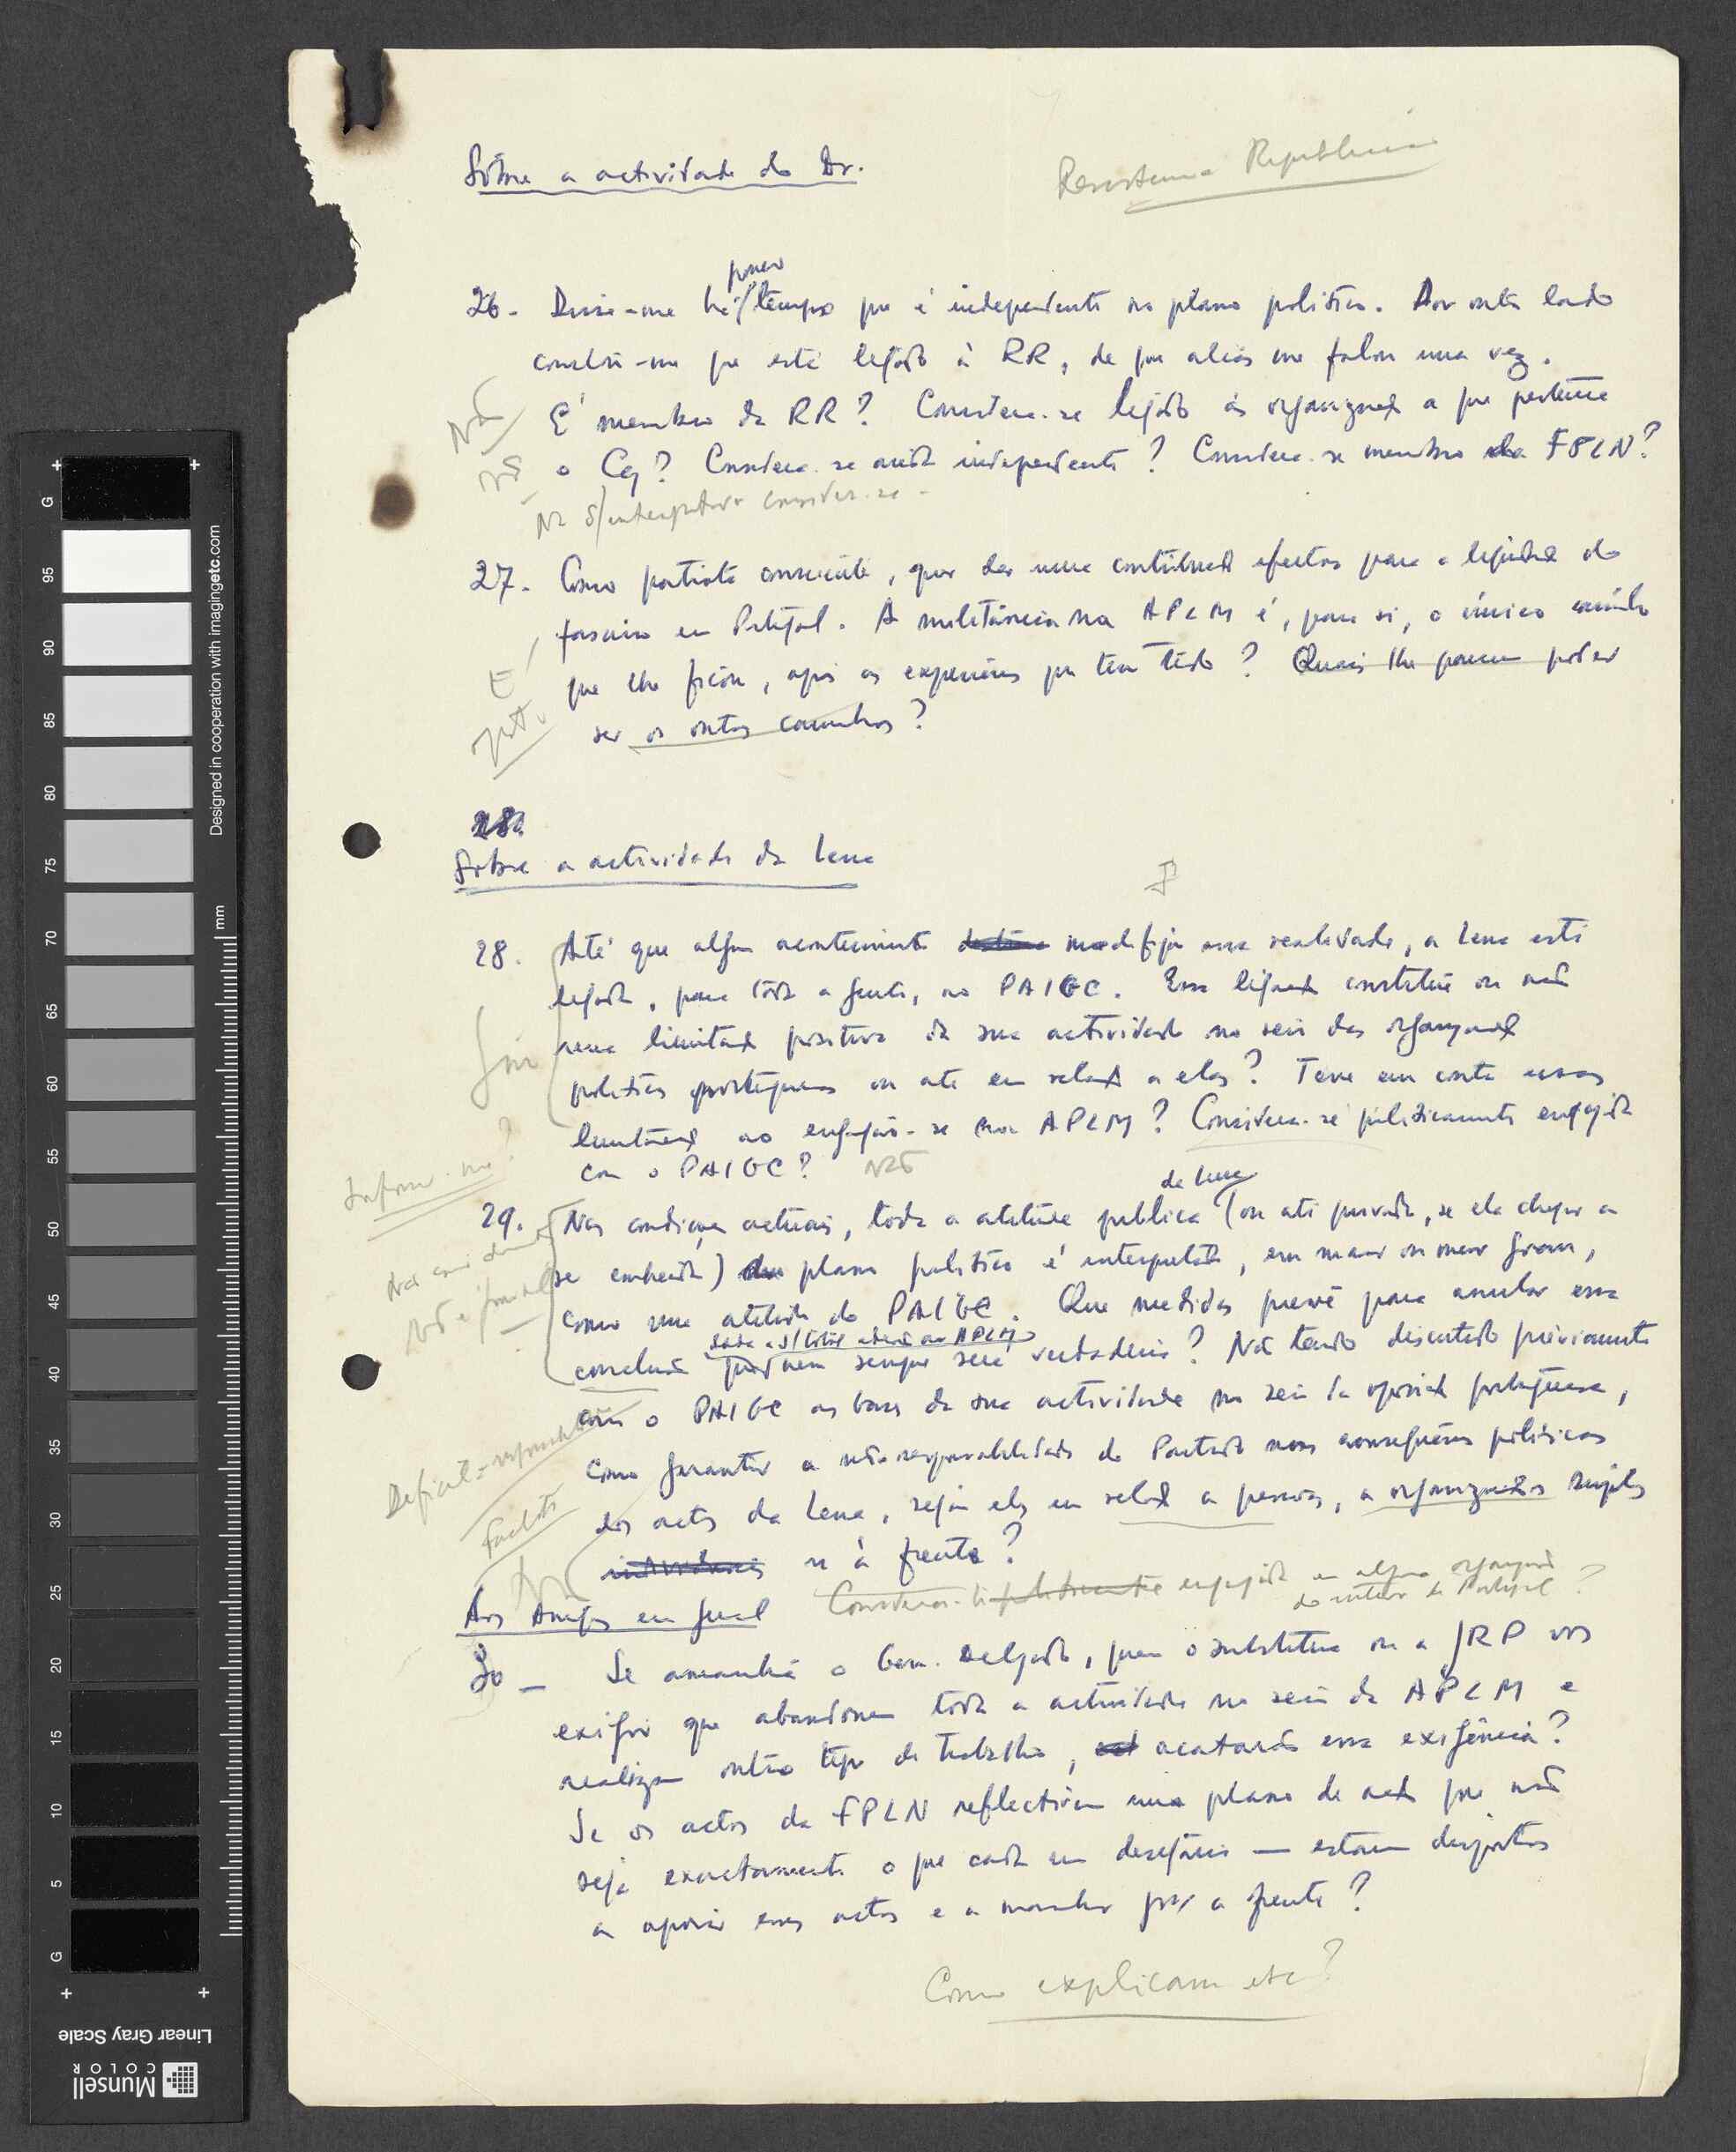 Sôbre a actividade do Dr.
Resistencia Republicana
pouco
26. Disse-me há tempo que é independente no plano político. Por outro lado
consta-me que está ligado à RR, de que aliás me falou uma vez.
Não É membro da RR? Considera-se ligado às organizações a que pertence
o Ceg? Considera-se ainda independente? Considera-se membro da FPLN?
Não considera-se
27. Como patriota consciente, quer dar uma contribuição efectiva para a liquidação do
fascismo em Portugal. A militância na APLM é, para si, o único caminho
É que lhe ficou, após as experiências que tem tido? Quais lhe parecem poder
ser os outros caminhos?
28.
Sobre a actividade da Lena
28. Até que algum acontecimento modifique essa realidade, a Lena está
ligada, para toda a gente, ao PAIGC. Essa ligação constitue ou não
Sim uma limitação positiva da sua actividade no seio das organizações
políticas portuguesas ou até em relação a elas? Teve em conta essas
limitações ao engajar-se na APLM? Considera-se politicamente engajada
com o PAIGC? Não
Informe-me?
de Lena
29. Nas condições actuais, toda a atitude pública (ou até privada, se ela chegar a
ser conhecida) plano político é interpretada, em maior ou menor grau,
como uma atitude do PAIGC. Que medidas prevê para anular essa
APLM
conclusão que nem sempre será verdadeira? Não tendo discutido previamente
com o PAIGC as bases da sua actividade no seio da oposição portuguesa,
como garantir a não-responsabilidade do Partido nas consequências políticas
dos actos da Lena, sejam eles em relação a pessoas, a organizações simples
ou à frente?
Aos Amigos em geral
engajada em alguma organização
do interior de Portugal?
30 - Se amanhã o Gen. Delgado, quem o substitua ou a JRP vos
exigir que abandonem toda a actividade no seio da APLM e
realizem outro tipo de trabalho, acatarão essa exigência?
Se os actos da FPLN reflectirem um plano de acção que não
seja exactamente o que cada um desejaria — estarão dispostos
a apoiar esses actos e a marchar para a frente?
Como explicam etc?
Designed in cooperation with imagingetc.com
mm
G
95
90
85
80
75
70
65
60
55
50
45
40
35
30
25
20
15
10
5
G
Linear Gray Scale
Munsell
COLOR